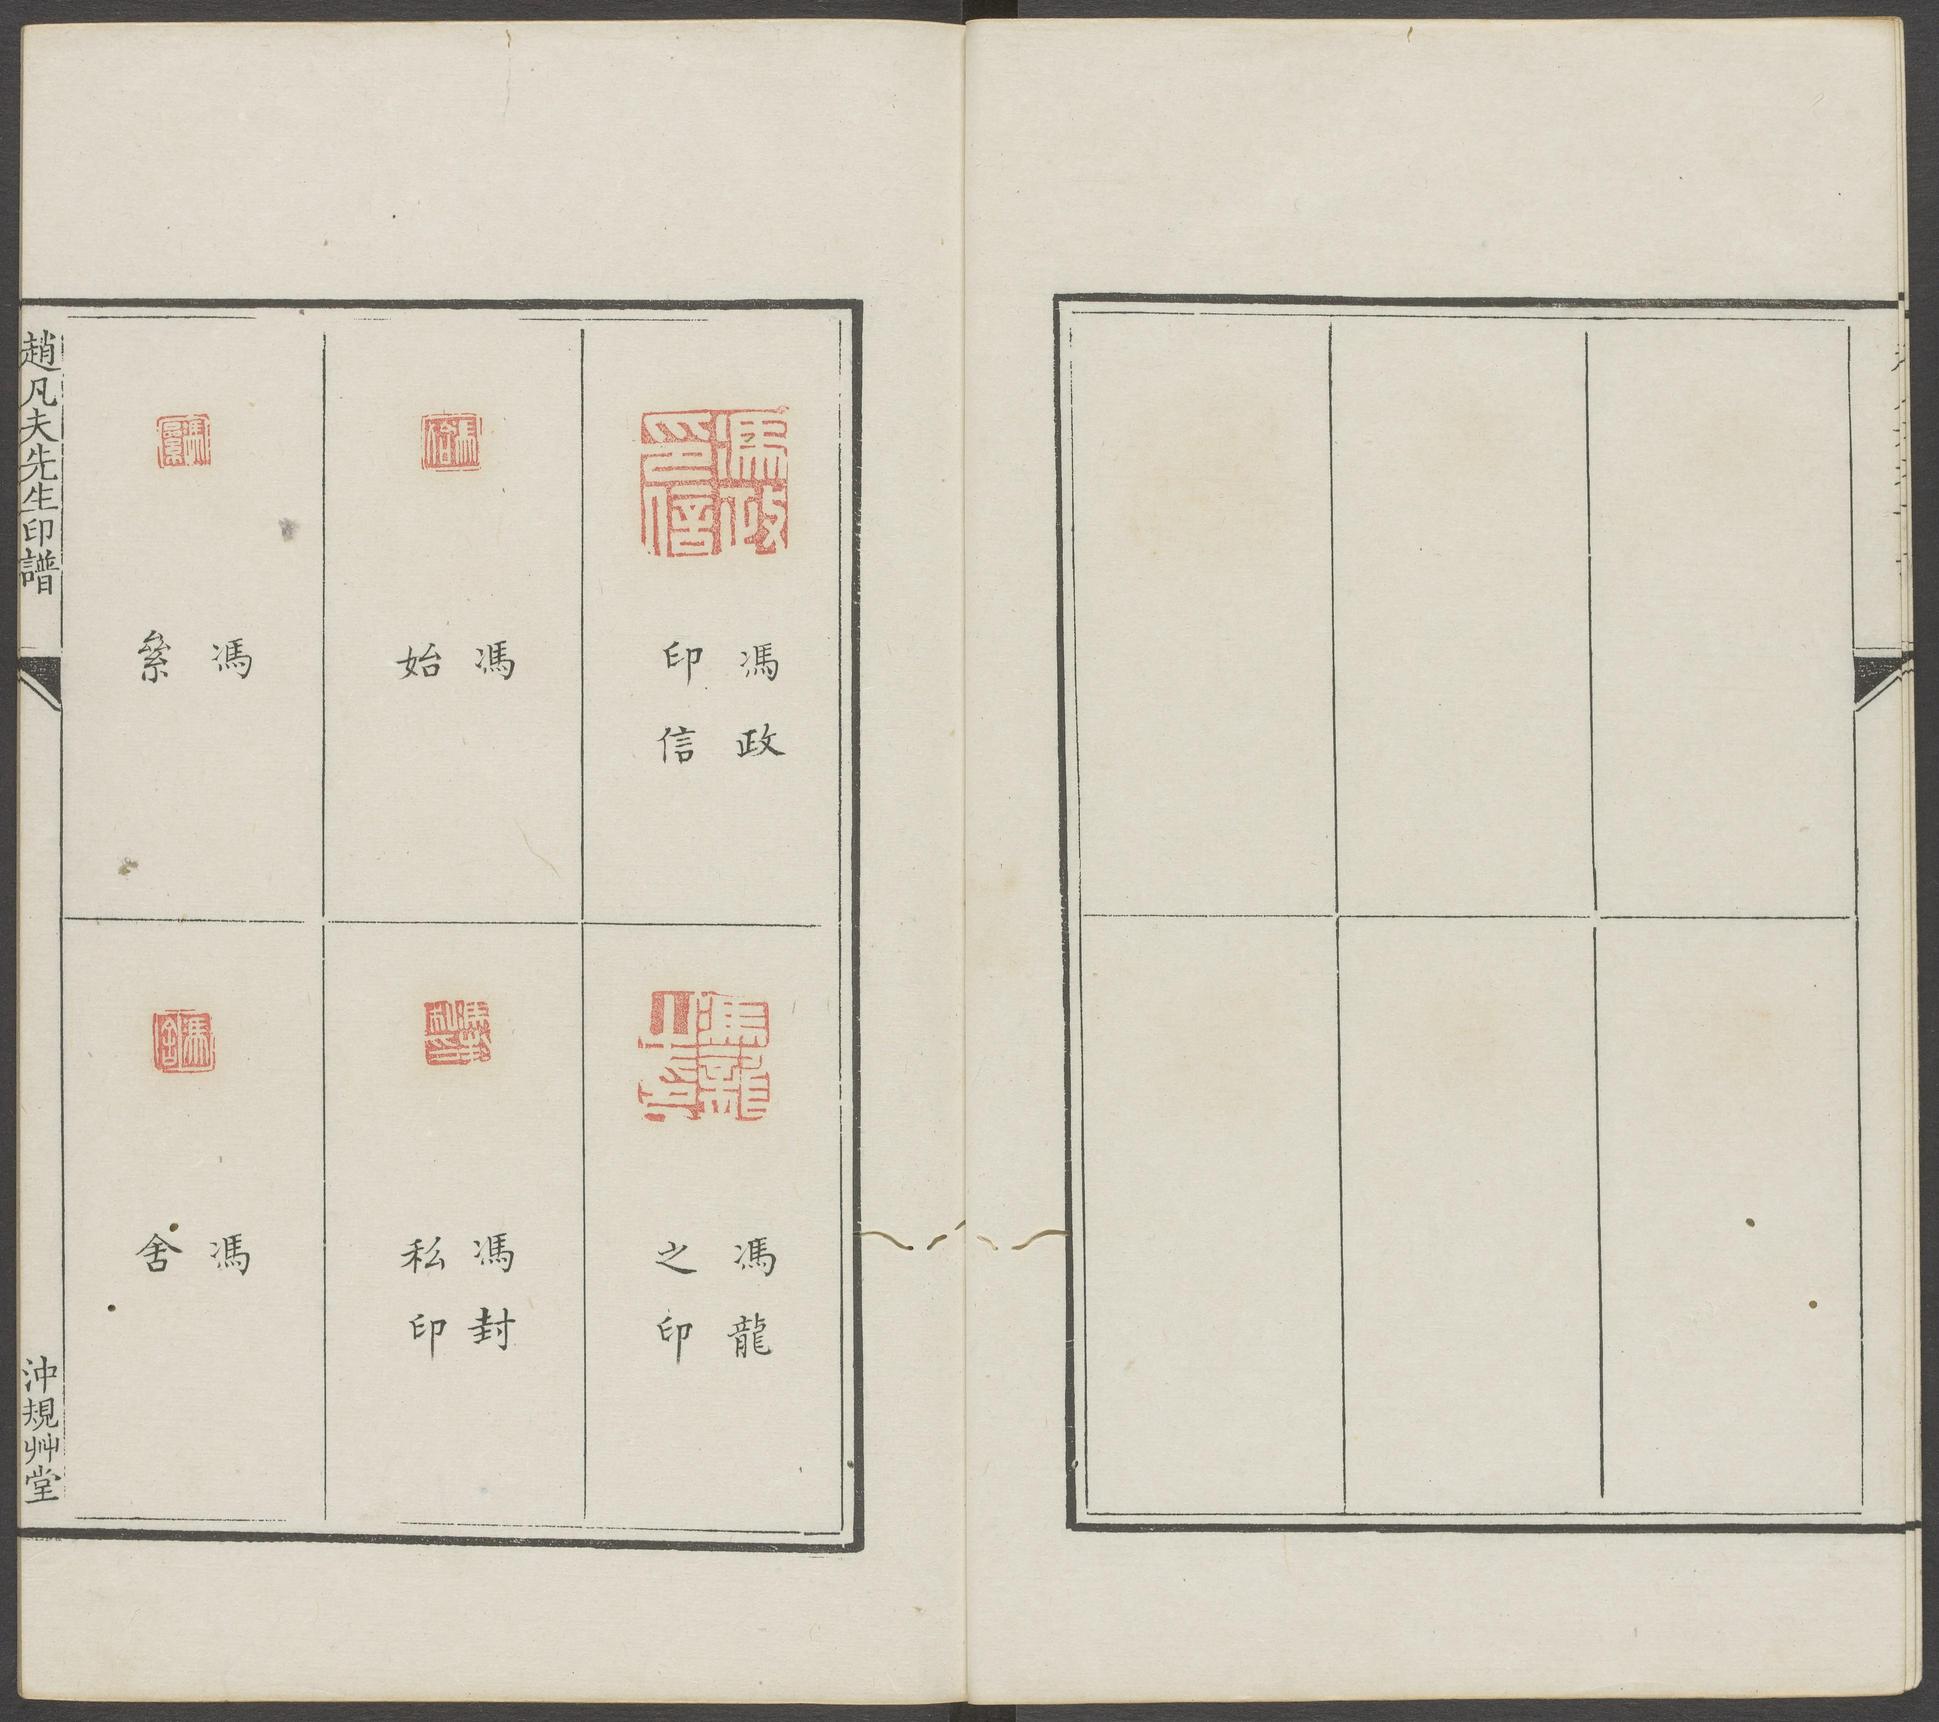 馮政
印信
馮龍
之印
馮
始
馮封
私印
馮
絫
馮
舍
趙凡夫先生印譜
沖規艸堂